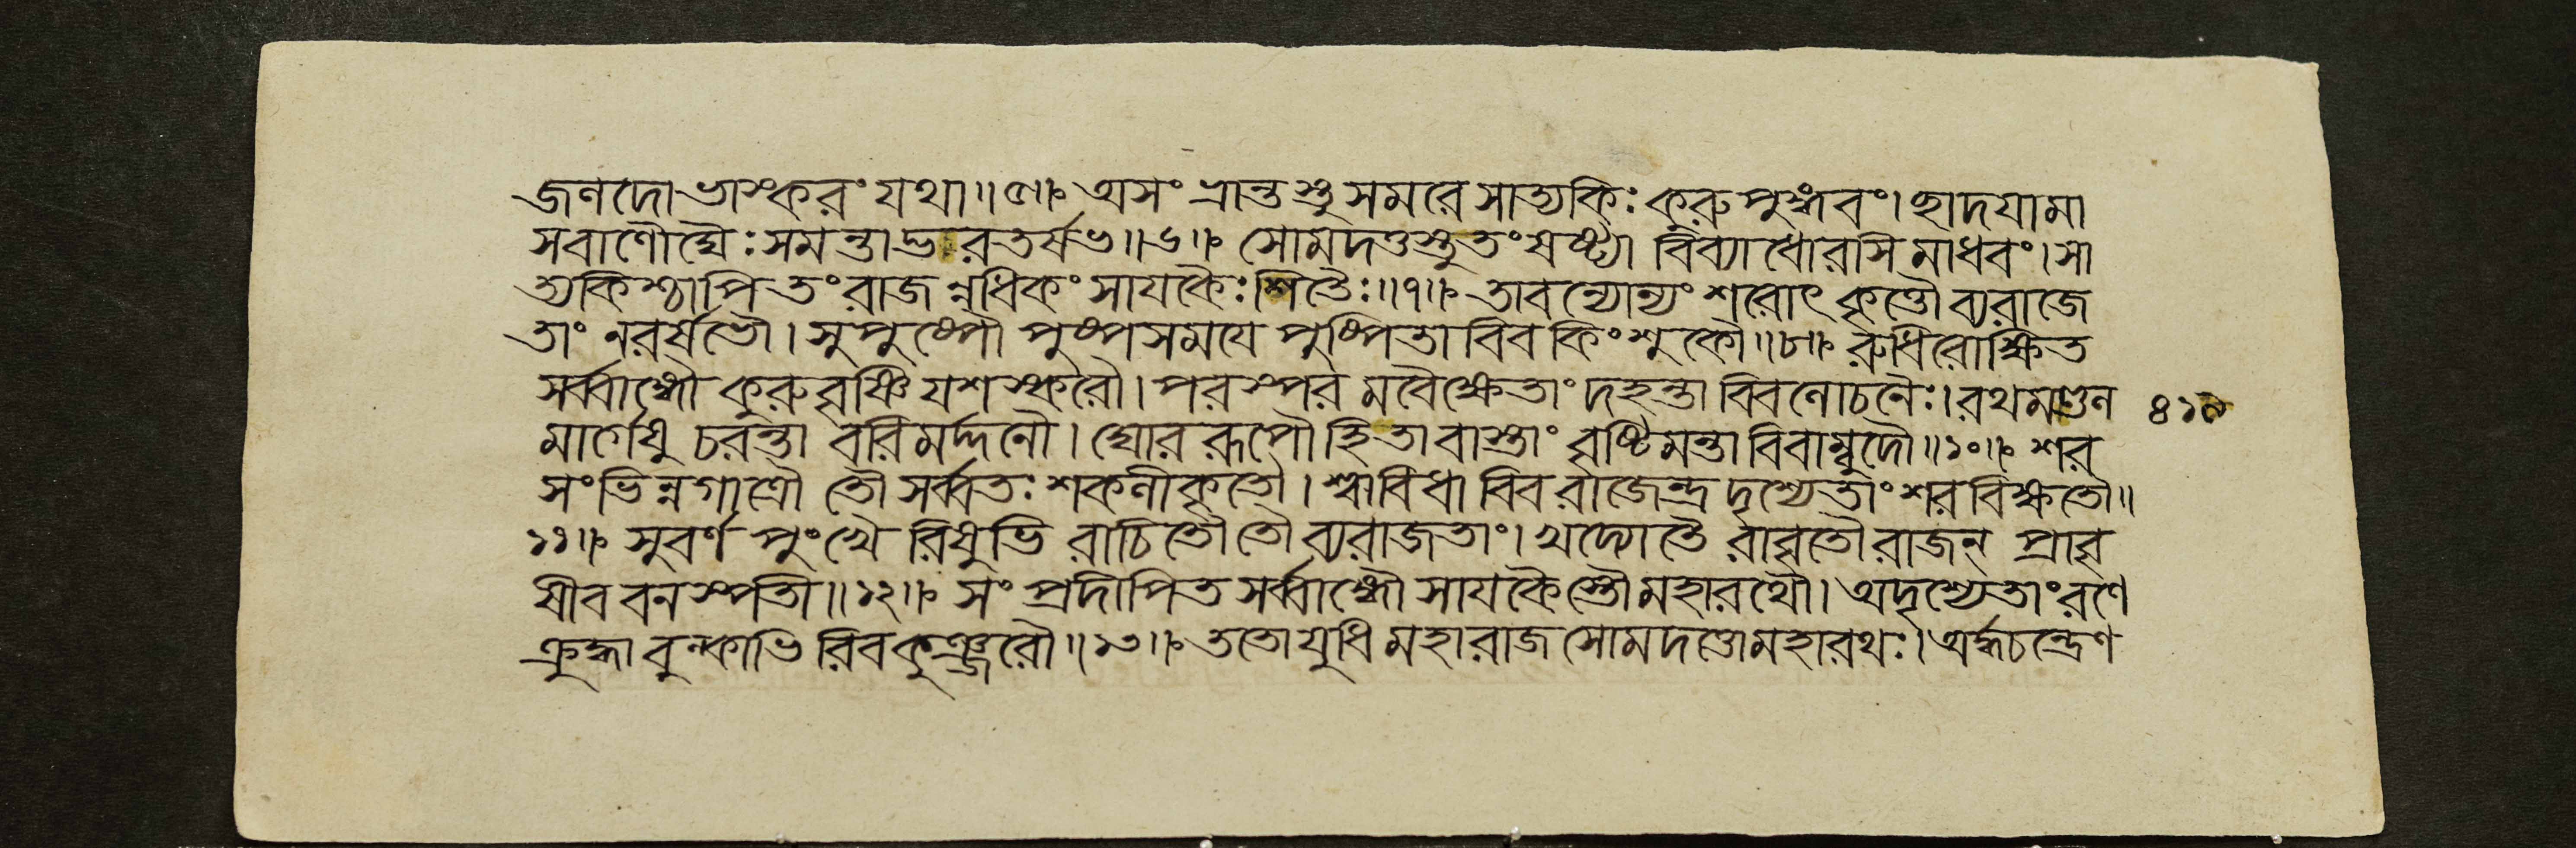 জলদো ভাস্করং যথা॥৫॥ অসংভ্রান্তস্তু সমরে সাত্যকিঃ কুরুপুঙ্গবং।ছাদযামা
স বাণৌঘৈঃ সমন্তাদ্ভরতর্ষভ॥৬॥ সোমদত্তস্তু তং ষষ্ট্যা বিব্যাধোরসি মাধবং।সা
ত্যকিশ্চাপি তং রাজন্নধিকং সাযকৈঃ শিতৈঃ॥৭॥ তাবন্যোন্যং শরোৎকৃত্তৌ ব্যরাজে
তাং নরর্ষভৌ। সুপুষ্পৌ পুষ্পসমযে পুষ্পিতাবিব কিংশুকৌ॥৮॥ রুধিরোক্ষিত
সর্ব্বাঙ্গৌ কুরুবৃষ্ণিযশস্করৌ। পরস্পরমবৈক্ষেতাং দহন্তাবিব লোচনৈঃ।রথমণ্ডল ৪১৫
মার্গেষু চরন্তাবরিমর্দ্দনৌ। ঘোররূপৌ হি তাবাস্তাং বৃষ্টিমন্তাবিবাম্বুদৌ॥১০॥ শর
সংভিন্নগাত্রৌ তৌ সর্ব্বতঃ শকলীকৃতৌ। শ্বাবিধাবিব রাজেন্দ্র দৃশ্যেতাং শরবিক্ষতৌ॥
১১॥ সুবর্ণপুংখৈরিষুভিরাচিতৌ তৌ ব্যরাজতাং। খদ্যোতৈরাবৃতৌ রাজন্ প্রাবৃ
ষীব বনস্পতী॥১২॥ সংপ্রদীপিতসর্ব্বাঙ্গৌ সাযকৈস্তৌ মহারথৌ। অদৃশ্যেতাং রণে
ক্রুদ্ধাবুল্কাভিরিব কুঞ্জরৌ॥১৩॥ ততো যুধি মহারাজ সোমদত্তো মহারথঃ।অর্দ্ধচন্দ্রেণ